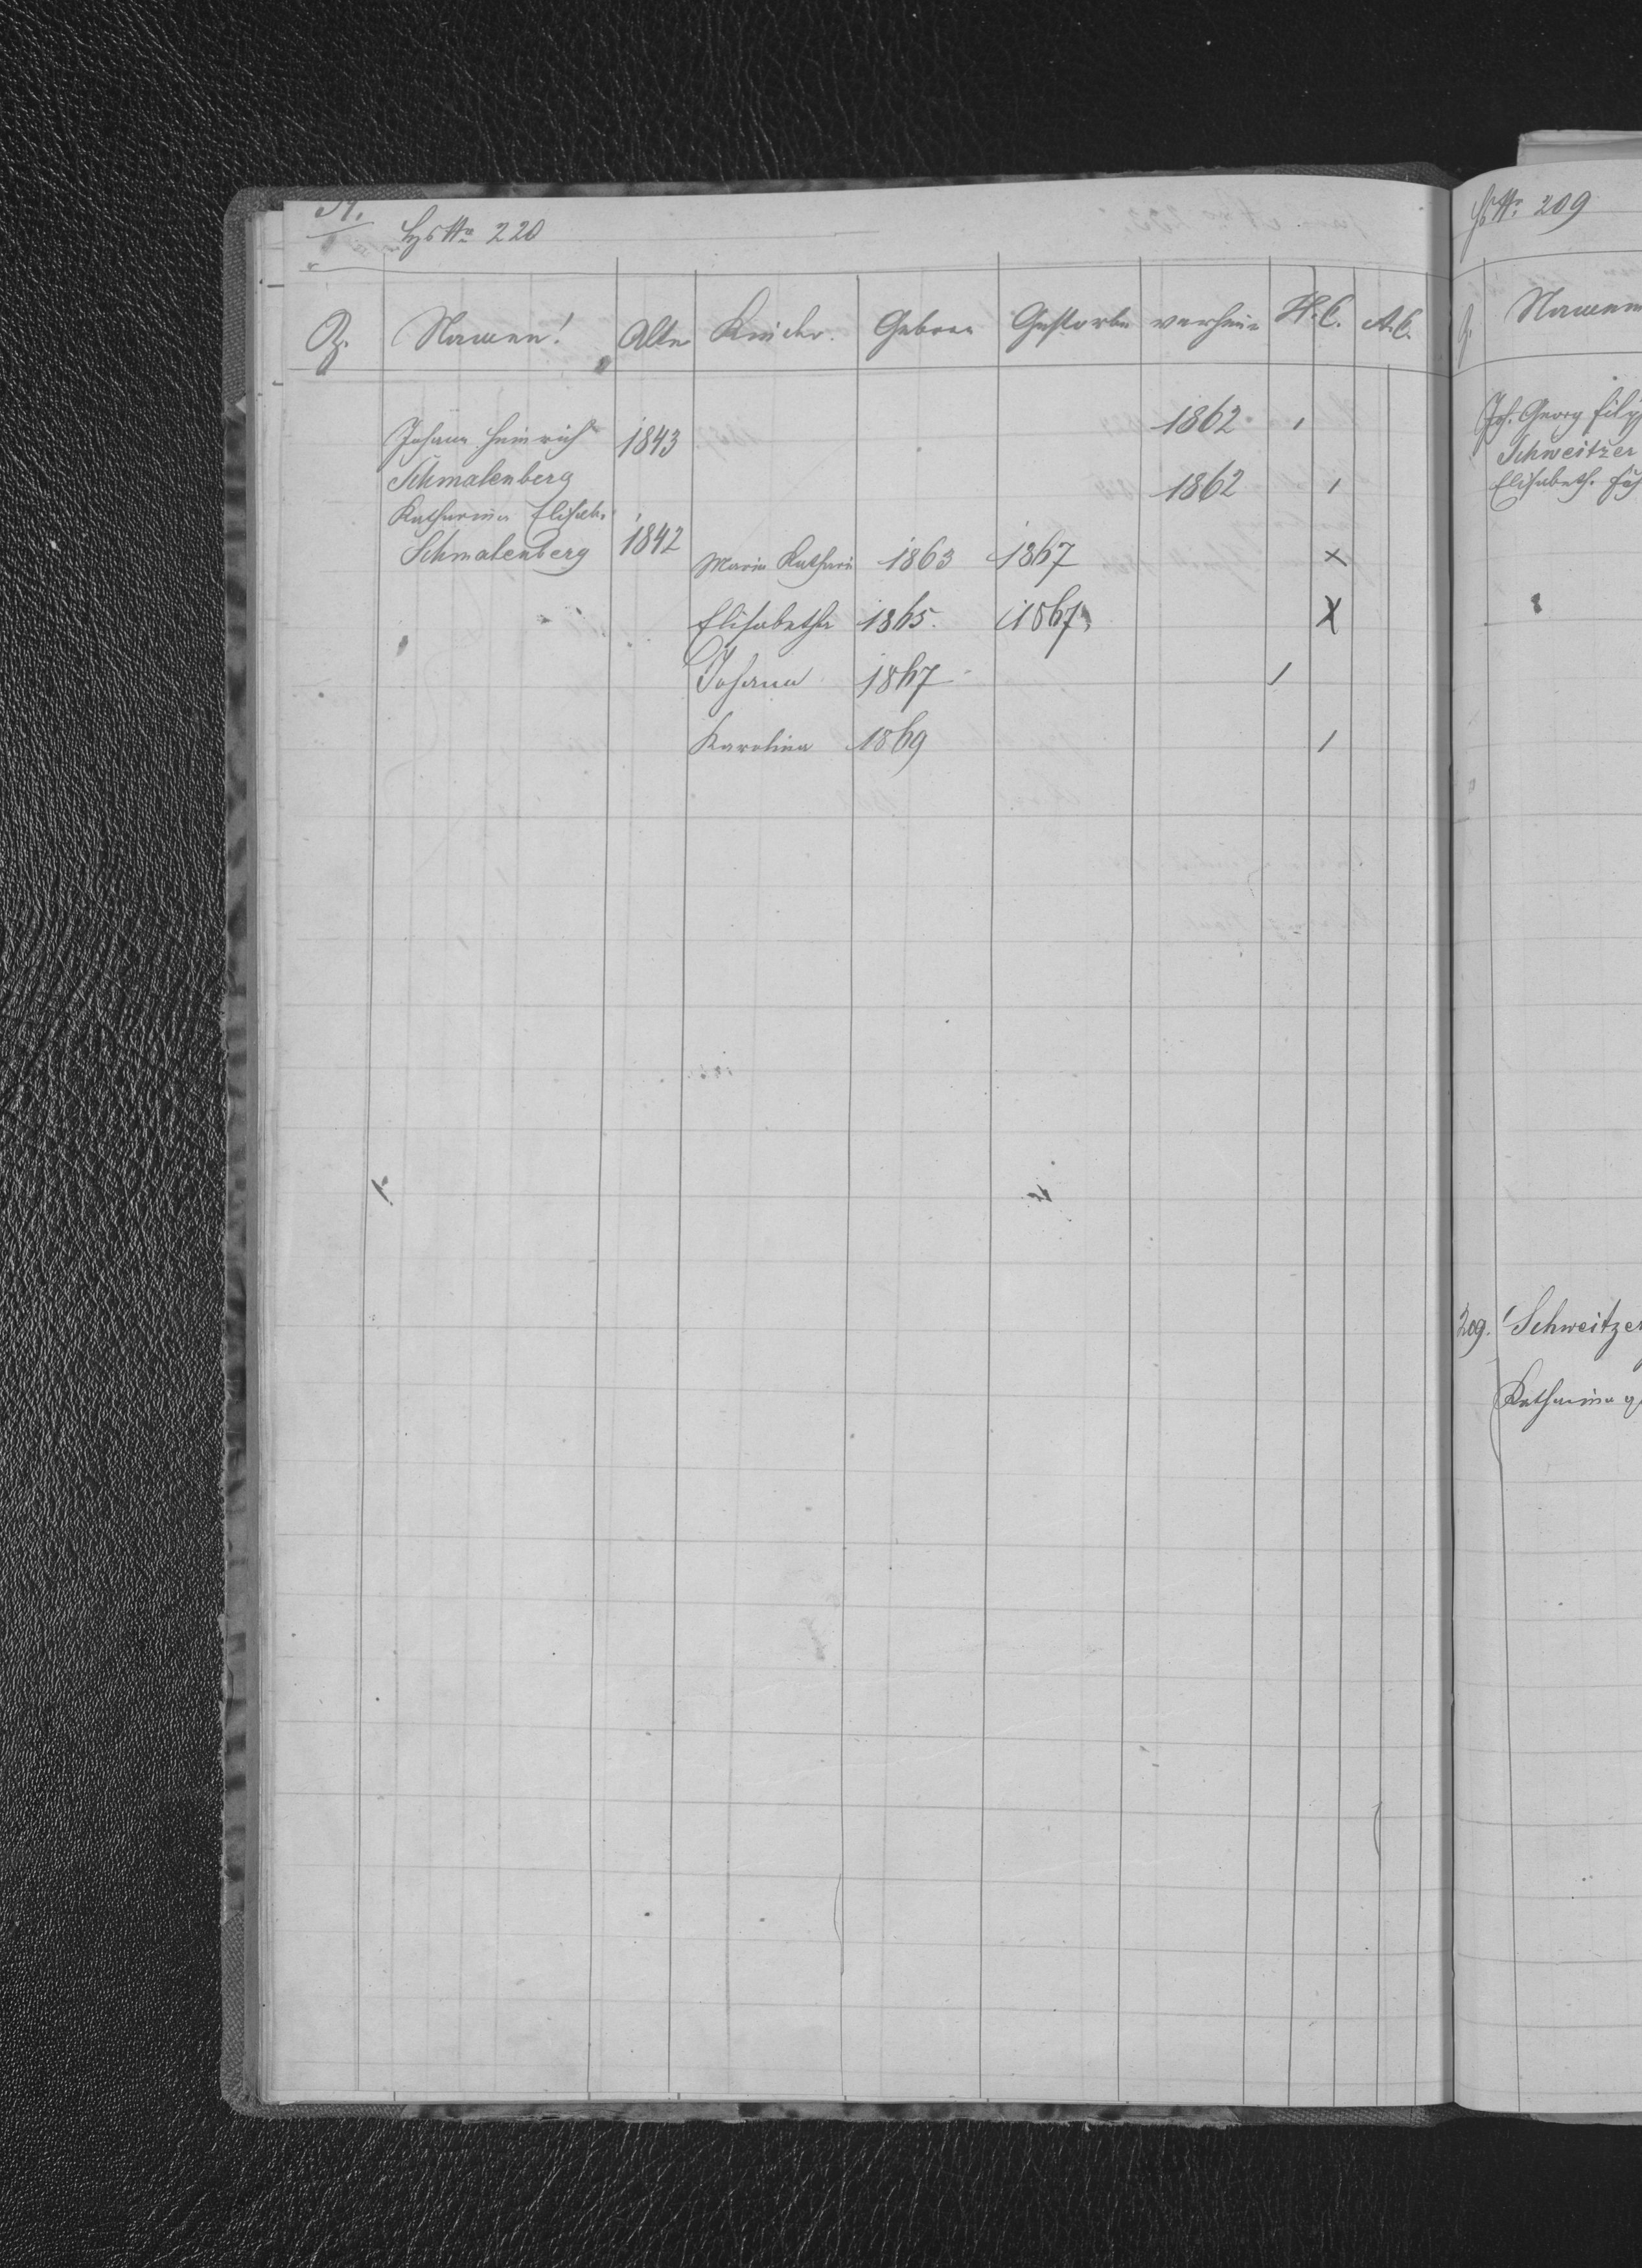 Hs No 220
Z. Namen! Alter Kinder. Geboren Gestorben verheir H.C. A.C.
Johann Heinrich 1843 1862 /
Schmalenberg 1862 /
Katharina Elisab.
Schmalenberg 1842
Maria Kathari 1863 1867 x
Elisabetha 1865. 1867 X
Johann 1867 /
Karolina 1869 /
Hs No. 209
Namen
Joh. Georg Filip
Schweitzer
Elisabeth.
209. Schweitzer
Katharina